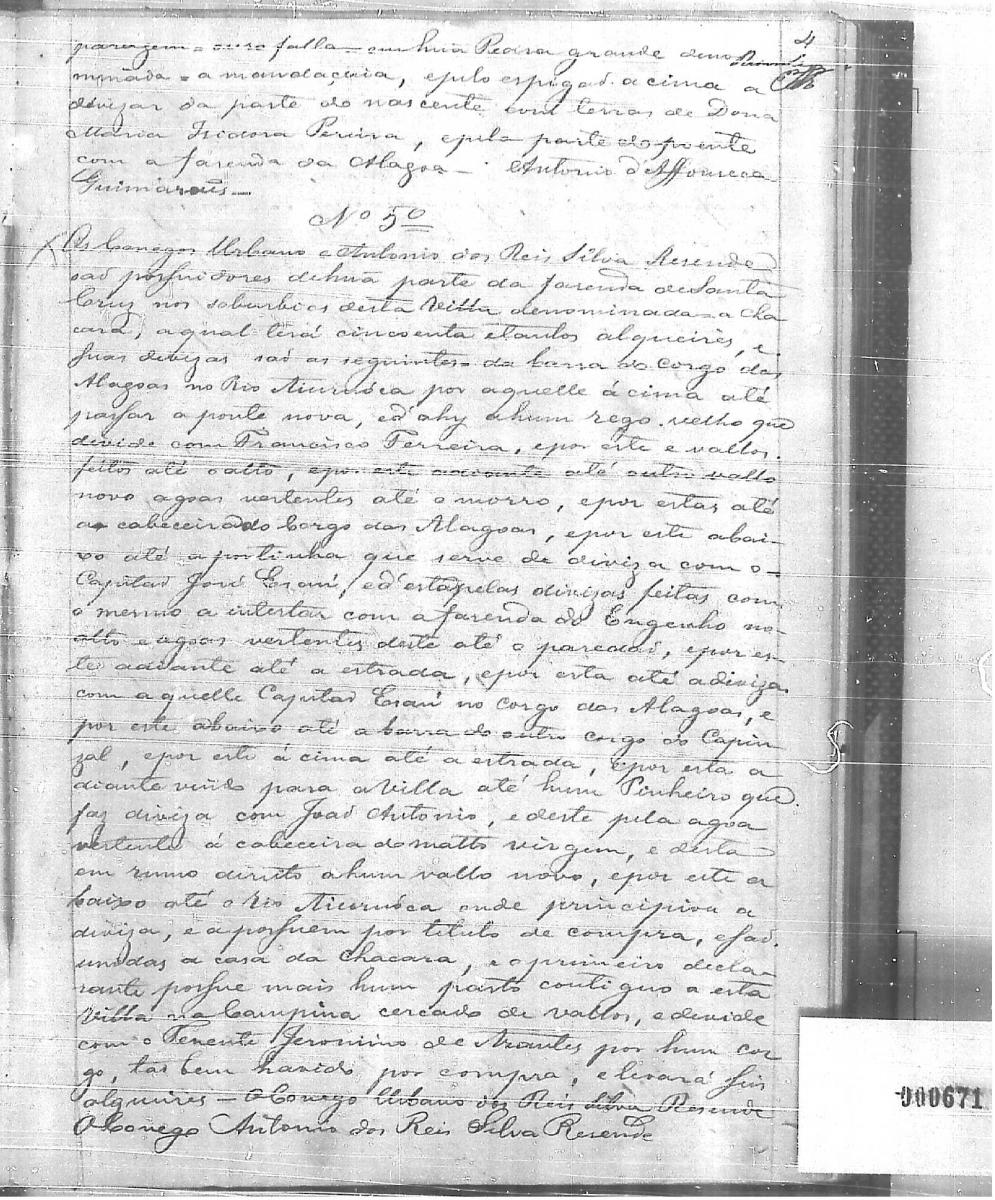 4
paragem = falla = em huã Pedra grande deno
minada = a mandaçaia, epelo espigaõ acima a
divizar da parte do nascente com terras de Dona
Maria Izidora Pereira, epela parte do poente
com a fazenda da Alagoa — Antonio d'Affonceca
Guimaraẽs —
Nº 5º
Os Conegos Urbano e Antonio dos Reis Silva Resende
saõ possuidores dehuã parte da fazenda de Santa
Cruz nos suburbios desta Villa denominada = a Cha
cara, aqual terá cincoenta etantos alqueires, e
suas divizas saõ as seguintes = da barra do corgo das
Alagoas no Rio Aiuruóca por aquelle á cima até
passar a ponte nova, ed'ahy ahum rego velho que
divide com Francisco Ferreira, epor este e vallos
feitos até oalto, epor este adiante até outro vallo
novo agoas vertentes até o morro, epor estas até
a cabeceira do Corgo das Alagoas, epor este abai-
xo até aportinha que serve de diviza com o
Capitaõ José Esaú, ed'esta pelas divizas feitas com
o mesmo a intestar com afazenda do Engenho no
alto e agoas vertentes deste até o paredaõ, epor es-
te adiante até a estrada, epor esta até adiviza
com aquelle Capitaõ Esaú no corgo das Alagoas, e
por este abaixo até abarra do outro corgo do Capin
zal, epor este á cima até a estrada, epor esta a
diante vindo para aVilla até hum Pinheiro que
faz diviza com Joaõ Antonio, edeste pela agoa
vertente á cabeceira domatto virgem, e desta
em rumo direito ahum vallo novo, epor este a
baixo até o Rio Aiuruóca onde principiou a
diviza, e a possuem por titulo de compra, esaõ
unidas a casa da Chacara, e oprimeiro decla-
rante possue mais hum pasto contiguo a esta
Villa na Campina cercado de vallos, edevide
com o Tenente Jeronimo de Arantes por hum cor
go, taõ bem havido por compra, elevará seis
alqueires — OConego Urbano dos Reis Silva Resende
OConego Antonio dos Reis Silva Resende
000671